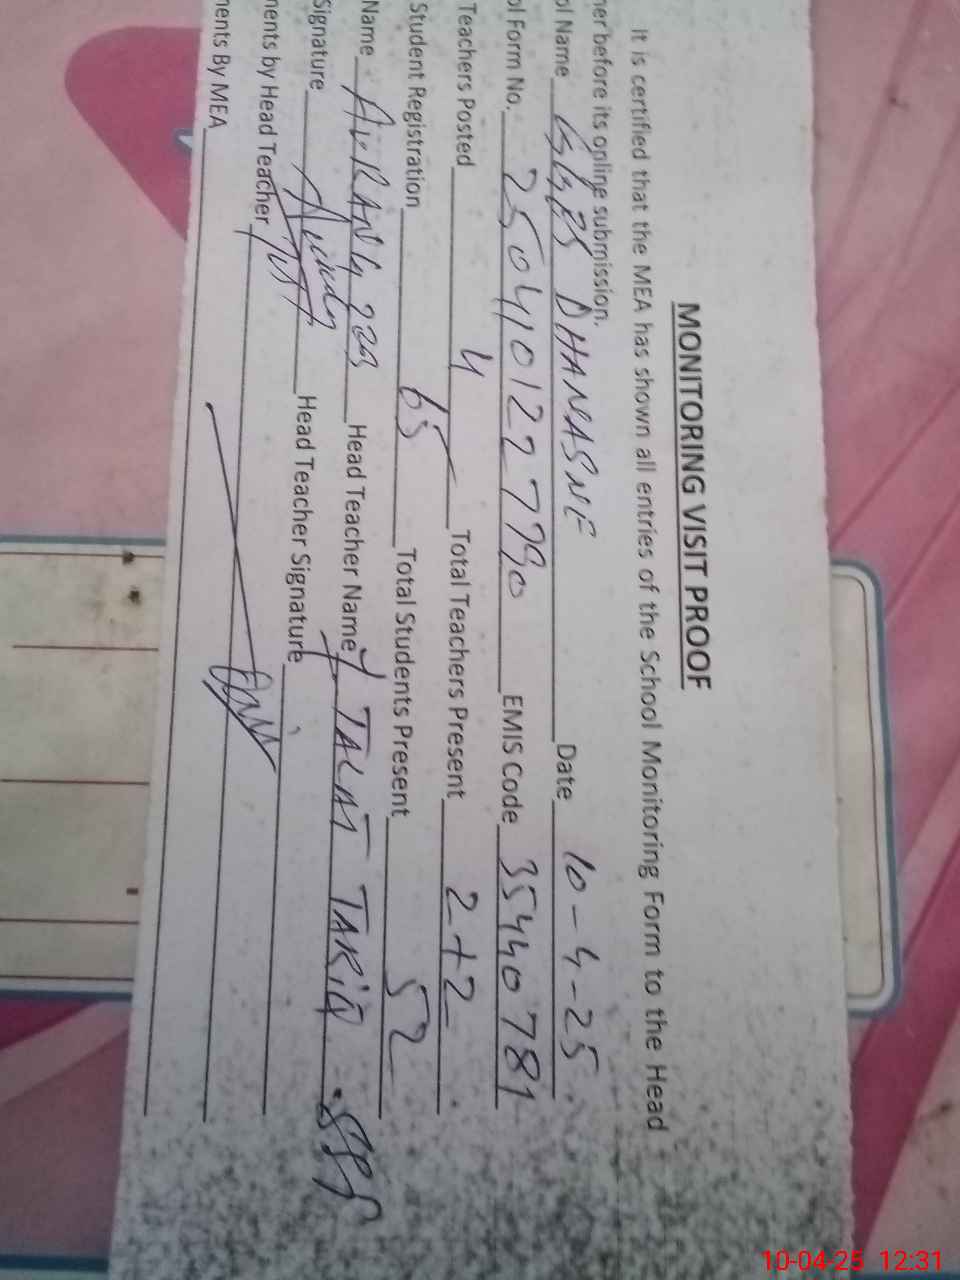 MONITORING VISIT PROOF
It is certified that the MEA has shown all entries of the School Monitoring Form to the Head
her before its online submission.
ol Name GGPS DHANASNE Date 10-4-25
ol Form No. Date EMIS Code 35440781
Teachers Posted 4 Total Teachers Present 2+2
Student Registration 65 Total Students Present 52
Name AURANGZEB Head Teacher Name TALAT TARIQ
Signature Head Teacher Signature
ments by Head Teacher
ments By MEA
10-04-25 12:31